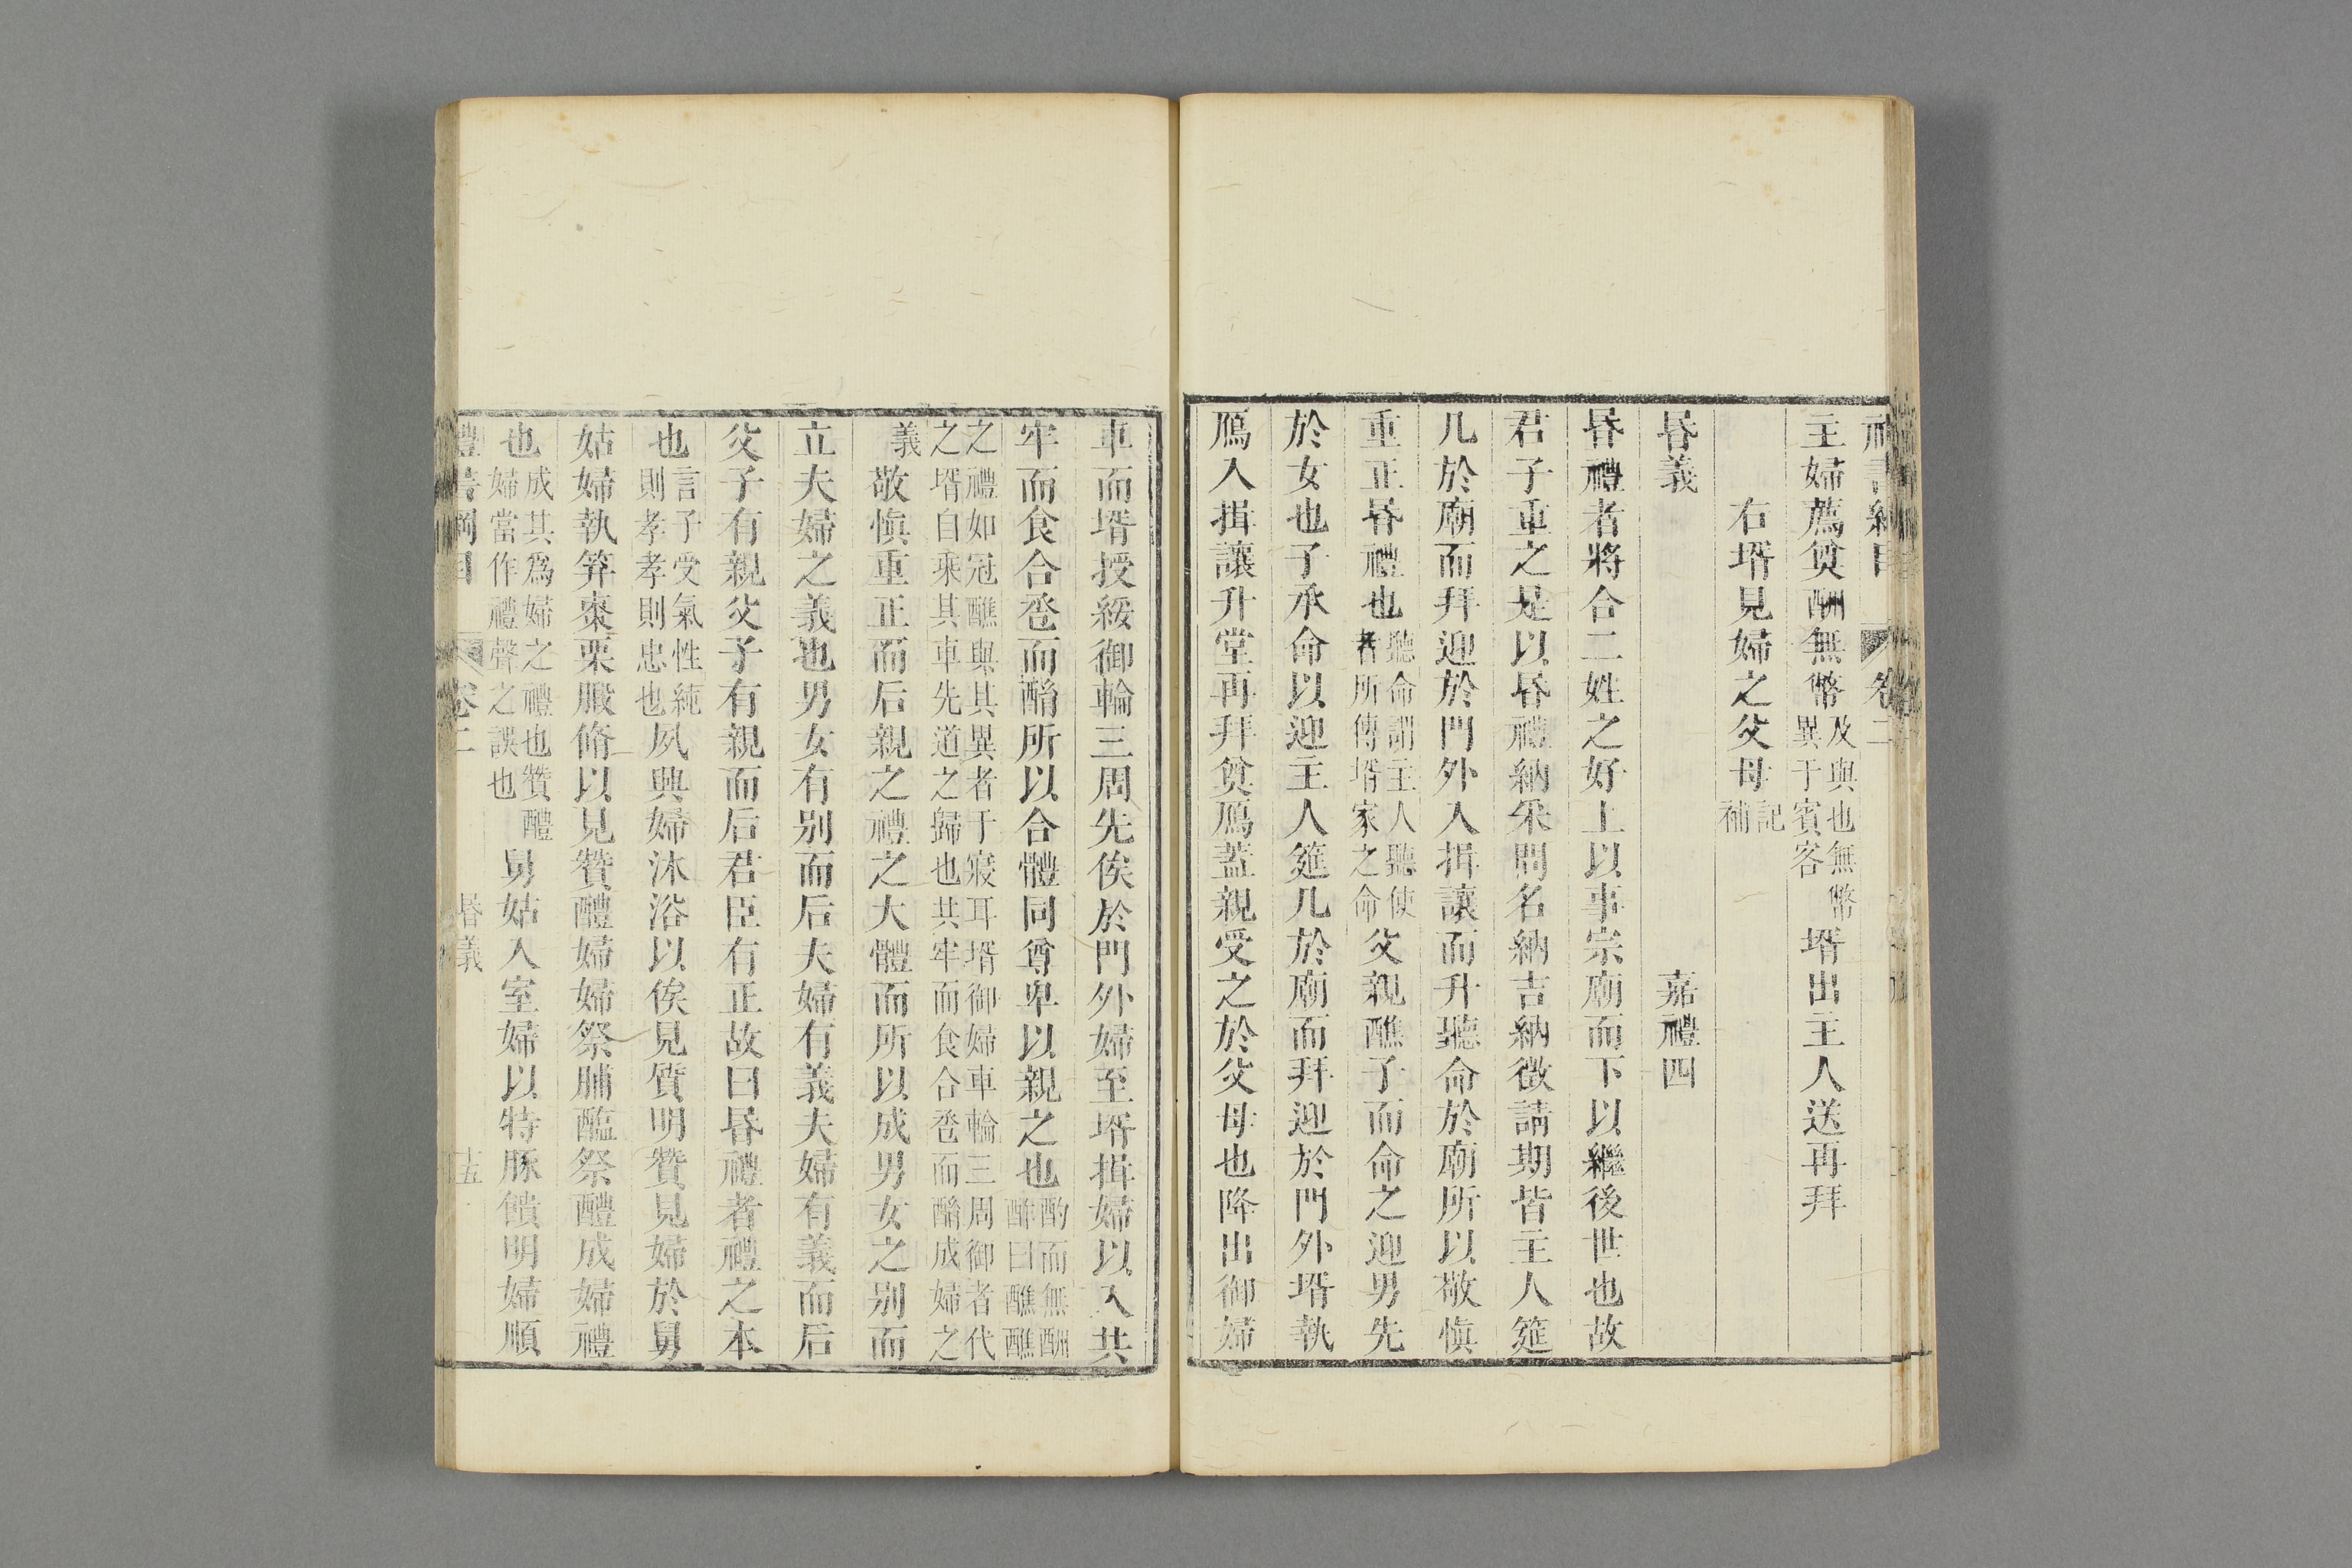 禮書綱目 卷二
主婦薦奠酬無幣及與也無幣異于賓客壻出主人送再拜
右壻見婦之父母記補
昏義 嘉禮四
昏禮者將合二姓之好上以事宗廟而下以繼後世也故
君子重之是以昏禮納采問名納吉納徵請期皆主人筵
几於廟而拜迎於門外入揖讓而升聽命於廟所以敬慎
重正昏禮也聽命謂主人聽使者所傳壻家之命父親醮子而命之迎男先
於女也子承命以迎主人筵几於廟而拜迎於門外壻執
鴈入揖讓升堂再拜奠鴈蓋親受之於父母也降出御婦
車而壻授綏御輪三周先俟於門外婦至壻揖婦以入共
牢而食合巹而酳所以合體同尊卑以親之也酌而無酬酢曰醮醮
之禮如冠醮與其異者于寢耳壻御婦車輪三周御者代之壻自乘其車先道之歸也共牢而食合巹而酳成婦之
義敬慎重正而后親之禮之大體而所以成男女之别而
立夫婦之義也男女有别而后夫婦有義夫婦有義而后
父子有親父子有親而后君臣有正故曰昏禮者禮之本
也言子受氣性純則孝孝則忠也夙興婦沐浴以俟見質明贊見婦於舅
姑婦執笲棗栗腶脩以見贊醴婦婦祭脯醢祭醴成婦禮
也成其為婦之禮也贊醴婦當作禮聲之誤也舅姑入室婦以特豚饋明婦順
禮書綱目 卷二 昏義 十五